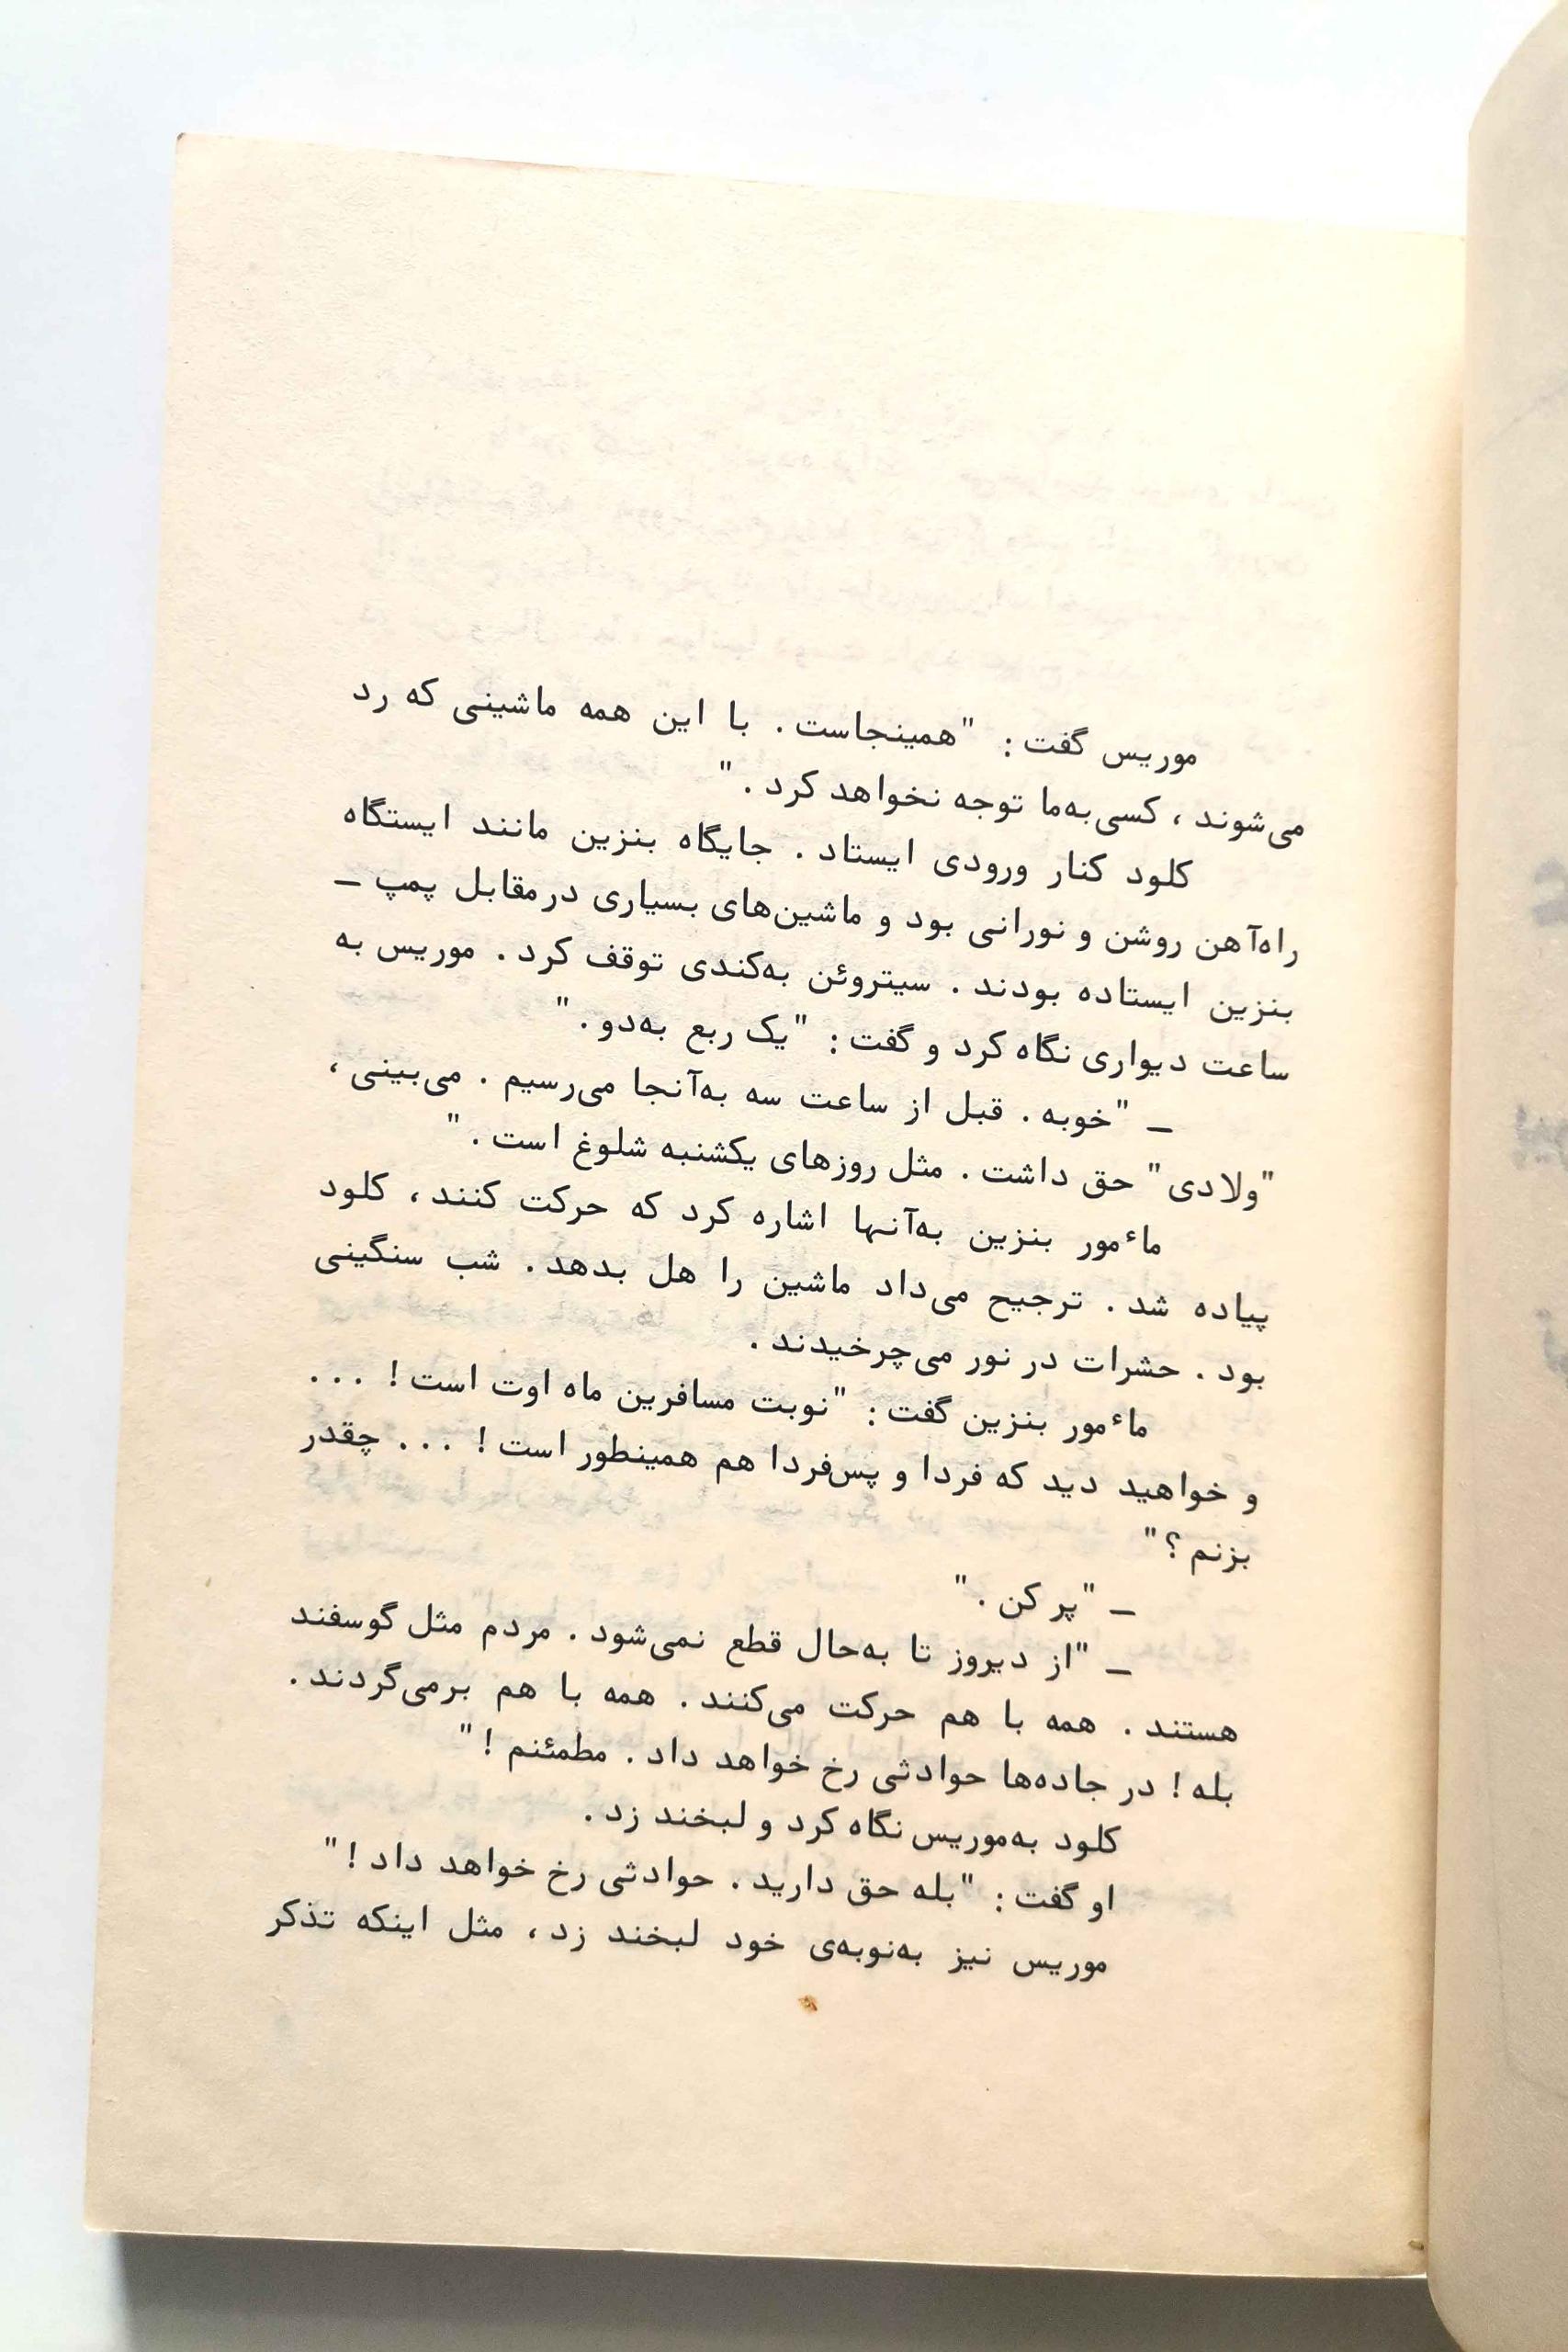 موریس گفت : "همینجاست . با این همه ماشینی که رد
می‌شوند ، کسی به‌ما توجه نخواهد کرد . "
کلود کنار ورودی ایستاد . جایگاه بنزین مانند ایستگاه
راه‌آهن روشن و نورانی بود و ماشین‌های بسیاری در مقابل پمپ –
بنزین ایستاده بودند . سیتروئن به‌کندی توقف کرد . موریس به
ساعت دیواری نگاه کرد و گفت : "یک ربع به‌دو . "
– "خوبه . قبل از ساعت سه به‌آنجا می‌رسیم . می‌بینی ،
"ولادی" حق داشت . مثل روزهای یکشنبه شلوغ است . "
ماٴمور بنزین به‌آنها اشاره کرد که حرکت کنند ، کلود
پیاده شد . ترجیح می‌داد ماشین را هل بدهد . شب سنگینی
بود . حشرات در نور می‌چرخیدند .
ماٴمور بنزین گفت : "نوبت مسافرین ماه اوت است ! . . .
و خواهید دید که فردا و پس‌فردا هم همینطور است ! . . . چقدر
بزنم ؟ "
– "پر کن . "
– "از دیروز تا به‌حال قطع نمی‌شود . مردم مثل گوسفند
هستند . همه با هم حرکت می‌کنند . همه با هم برمی‌گردند .
بله ! در جاده‌ها حوادثی رخ خواهد داد . مطمئنم ! "
کلود به‌موریس نگاه کرد و لبخند زد .
او گفت : "بله حق دارید . حوادثی رخ خواهد داد ! "
موریس نیز به‌نوبه‌ی خود لبخند زد ، مثل اینکه تذکر